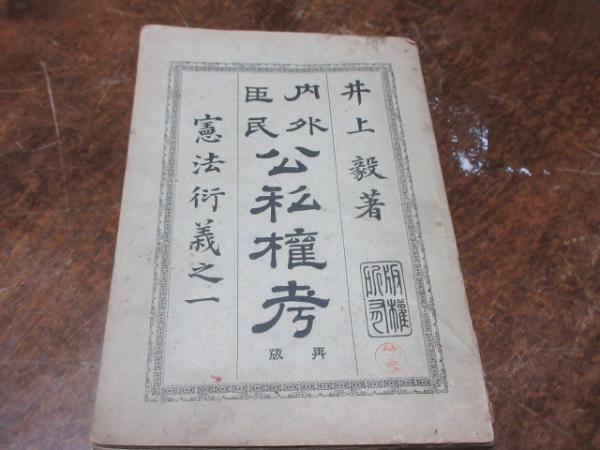 井上毅著
版權所有
内外臣民
公私權考
再版
憲法衍義之一